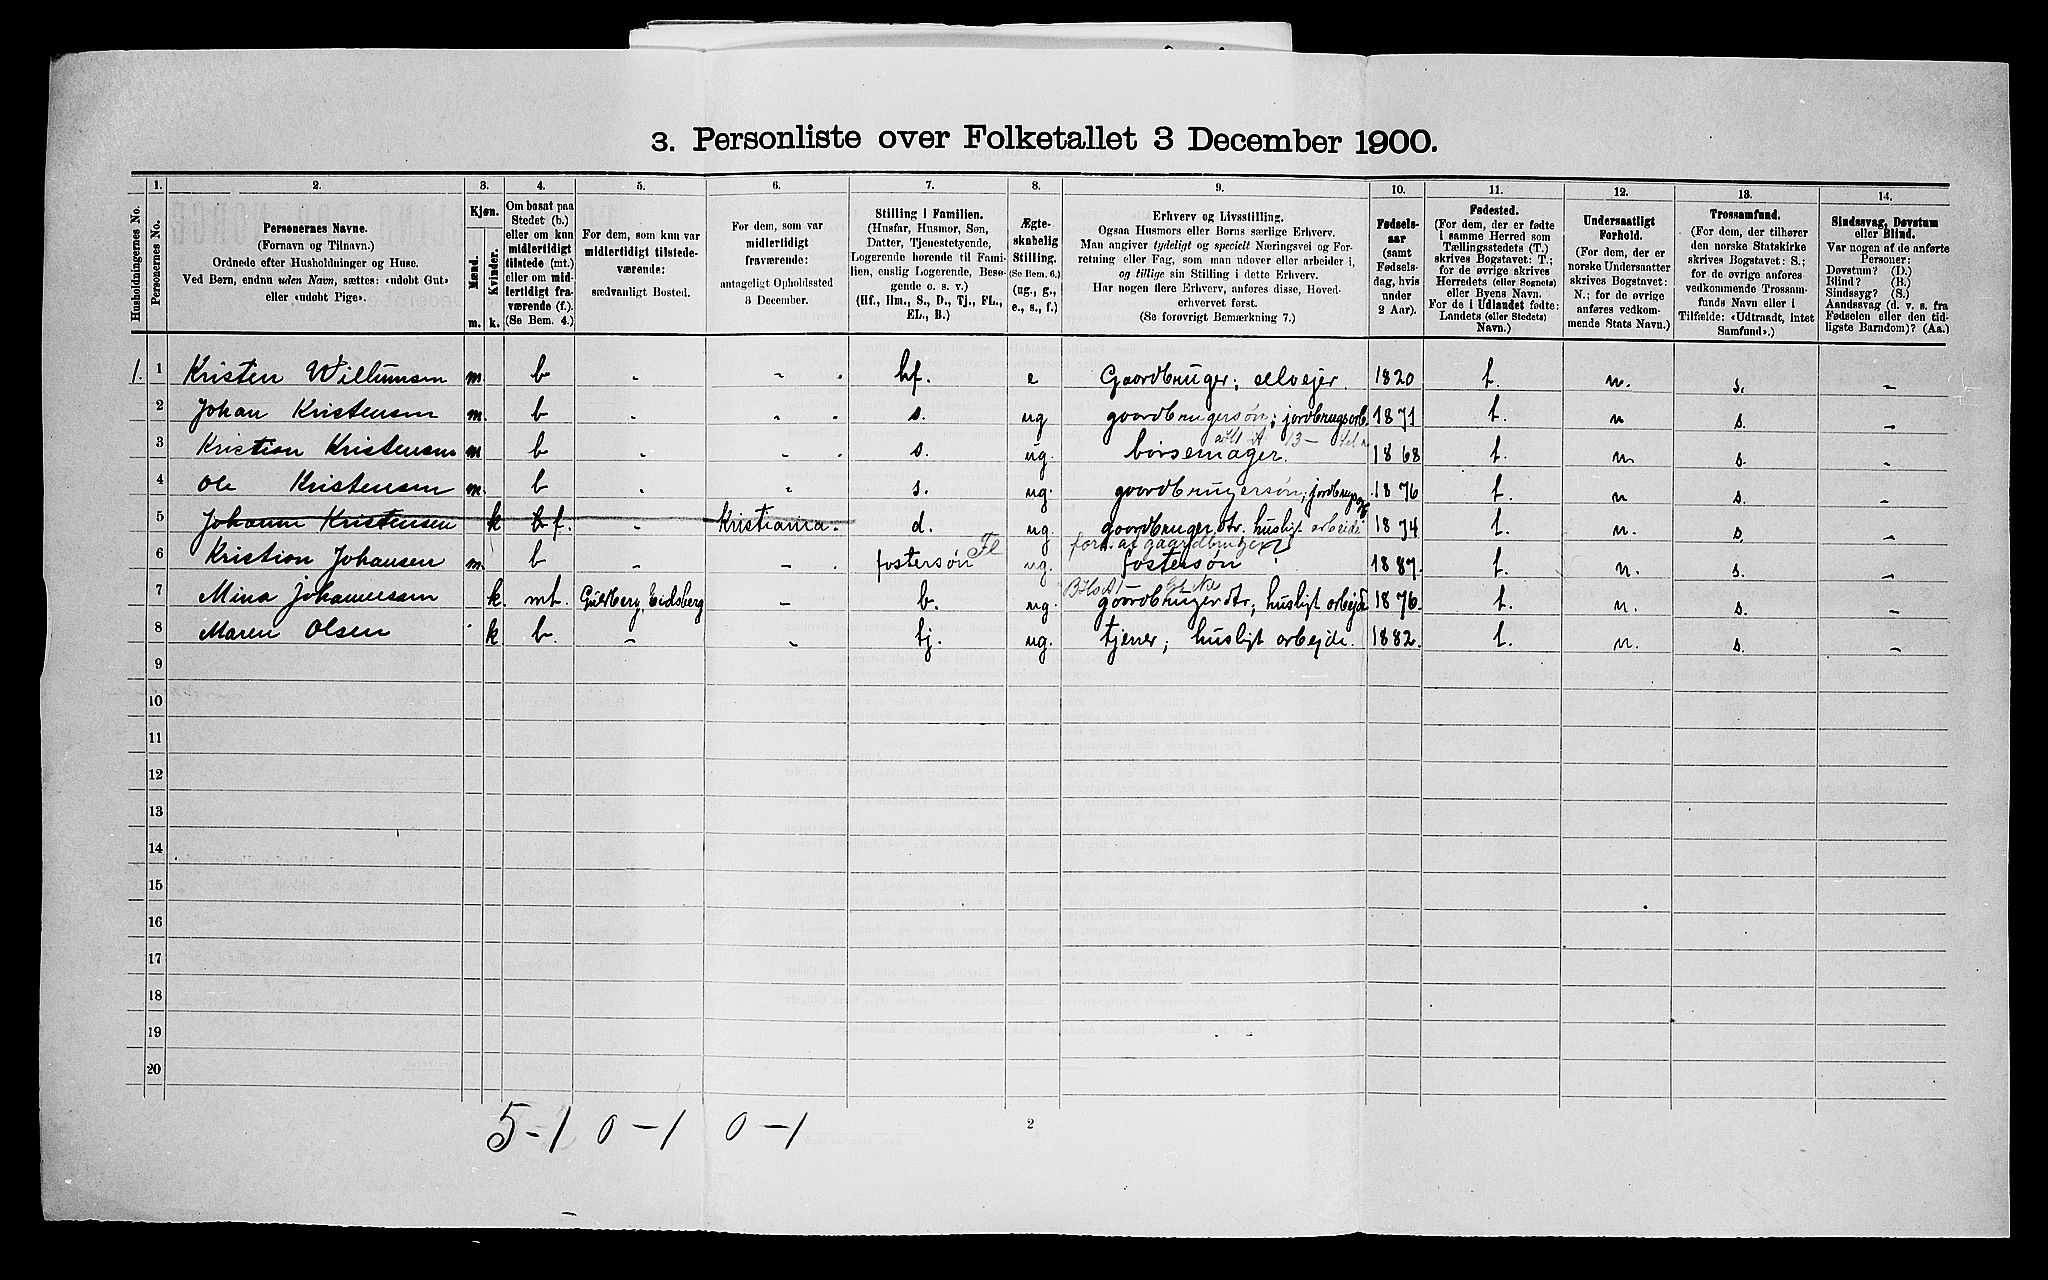 3. Personliste over Folketallet 3 December 1900.
1. 2. 3. 4. 5. 6. 7. 8. 9. 10. 11. 12. 13. 14.
Husholdningernes No.
Personernes No.
Personernes Navne.
(Fornavn og Tilnavn.)
Ordnede efter Husholdninger og Huse.
Ved Børn, endnu uden Navn, sættes: «udøbt Gut»
eller «udøbt Pige».
Kjøn.
Mænd.
Kvinder.
m. k.
Om bosat paa
Stedet (b.)
eller om kun
midlertidigt
tilstede (mt.)
eller om mid-
lertidigt fra-
værende (f.).
(Se Bem. 4.)
For dem, som kun var
midlertidigt tilstede-
værende:
sædvanligt Bosted.
For dem, som var
midlertidigt
fraværende:
antageligt Opholdssted
3 December.
Stilling i Familien.
(Husfar, Husmor, Søn,
Datter, Tjenestetyende,
Logerende hørende til Fami-
lien, enslig Logerende, Besø-
gende o. s. v.)
(Hf., Hm., S., D., Tj., FL.,
EL., B.)
Ægte-
skabelig
Stilling.
(Se Bem. 6.)
(ug., g.,
e., s., f.)
Erhverv og Livsstilling.
Ogsaa Husmors eller Børns særlige Erhverv.
Man angiver tydeligt og specielt Næringsvei og For-
retning eller Fag, som man udøver eller arbeider i,
og tillige sin Stilling i dette Erhverv.
Har nogen flere Erhverv, anføres disse, Hoved-
erhvervet først.
(Se forøvrigt Bemærkning 7.)
Fødsels-
aar
(samt
Fødsels-
dag, hvis
under
2 Aar).
Fødested.
(For dem, der er fødte
i samme Herred som
Tællingsstedets (T.)
skrives Bogstavet: T.;
for de øvrige skrives
Herredets (eller Sognets)
eller Byens Navn.
For de i Udlandet fødte:
Landets (eller Stedets)
Navn.)
Undersaatligt
Forhold.
(For dem, der er
norske Undersaatter
skrives Bogstavet:
N.; for de øvrige
anføres vedkom-
mende Stats Navn.)
Trossamfund.
(For dem, der tilhører
den norske Statskirke
skrives Bogstavet: S.;
for de øvrige anføres
vedkommende Trossam-
funds Navn eller i
Tilfælde: «Udtraadt, intet
Samfund».)
Sindssvag, Døvstum
eller Blind.
Var nogen af de anførte
Personer:
Døvstum? (D.)
Blind? (B.)
Sindssyg? (S.)
Aandssvag (d. v. s. fra
Fødselen eller den tid-
ligste Barndom)? (Aa.)
1. 1 Kristen Willumsen m. b - - hf. e Gaardbruger; selvejer. 1820 t. n. s. -
2 Johan Kristensen m. b - - s. ug gaardbrugersøn; jordbrugsarb. 1871 t. n s. -
3 Kristian Kristensen m b - - s. ug. børsemager. 1868 t. n. s. -
4 Ole Kristensen m. b - - s. ug. gaardbrugersøn; jordbrugs 1876 t. n s. -
5 Johanne Kristensen k b f. - Kristiania. d. ug. gaardbruger dtr. husligt arbeide 1874 t. n. s. -
6 Kristian Johansen m. b - - fostersøn Fl ug. fostersøn 1887. t. n. s. -
7 Mina Johannessen k. mt. Gulsberg, Eidsberg - b. ug. gaardbruger dtr, husligt arbejde 1876. t. n. s. -
8 Maren Olsen k b. - - tj. ug. tjener; husligt arbejde. 1882. t. n. s. -
9
10
11
12
13
14
15
16
17
18
19
20
5-1 0-1 0-1
2